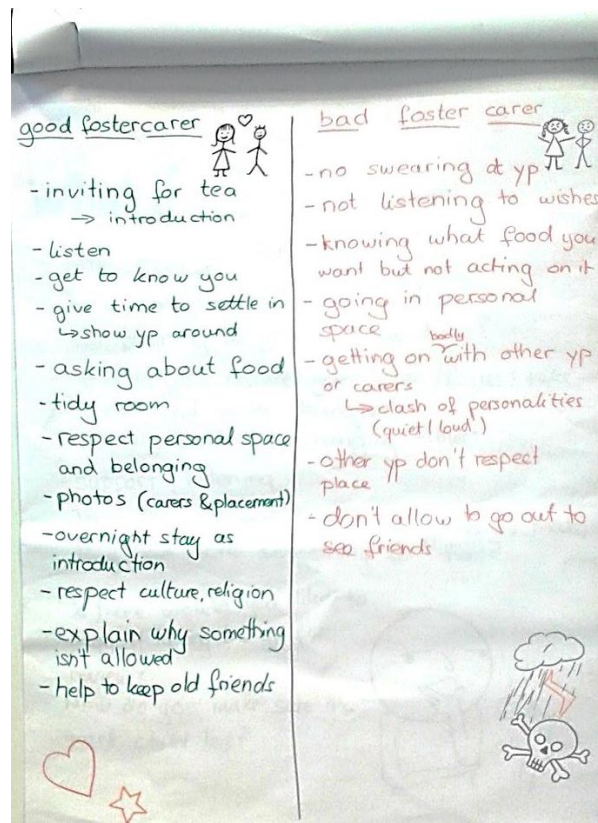 good fostercarer
- inviting for tea
→ introduction
- listen
- get to know you
- give time to settle in
↳ show yp around
- asking about food
- tidy room
- respect personal space
and belonging
- photos (carers & placement)
- overnight stay as
introduction
- respect culture, religion
- explain why something
isn't allowed
- help to keep old friends
bad foster carer
- no swearing at yp
- not listening to wishes
- knowing what food you
want but not acting on it
- going in personal
space
badly
- getting on with other yp
or carers
↳ clash of personalities
(quiet/loud)
- other yp don't respect
place
- don't allow to go out to
see friends